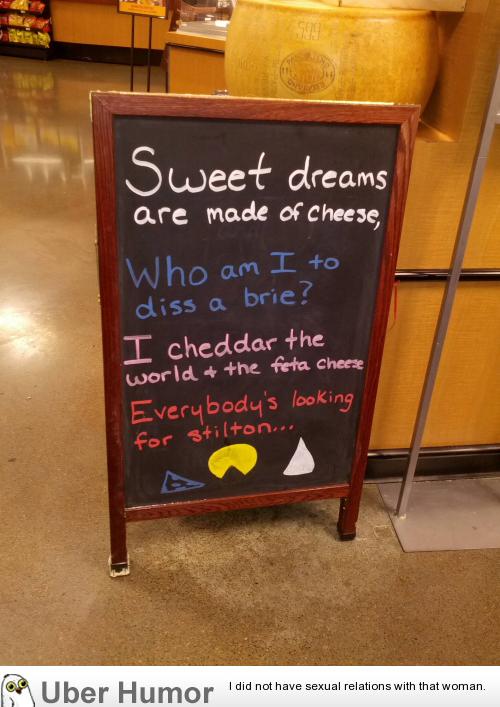 Sweet dreams
are made of cheese,
Who am I to
diss a brie?
I cheddar the
world + the feta cheese
Everybody's looking
for stilton...
Uber Humor
I did not have sexual relations with that woman.